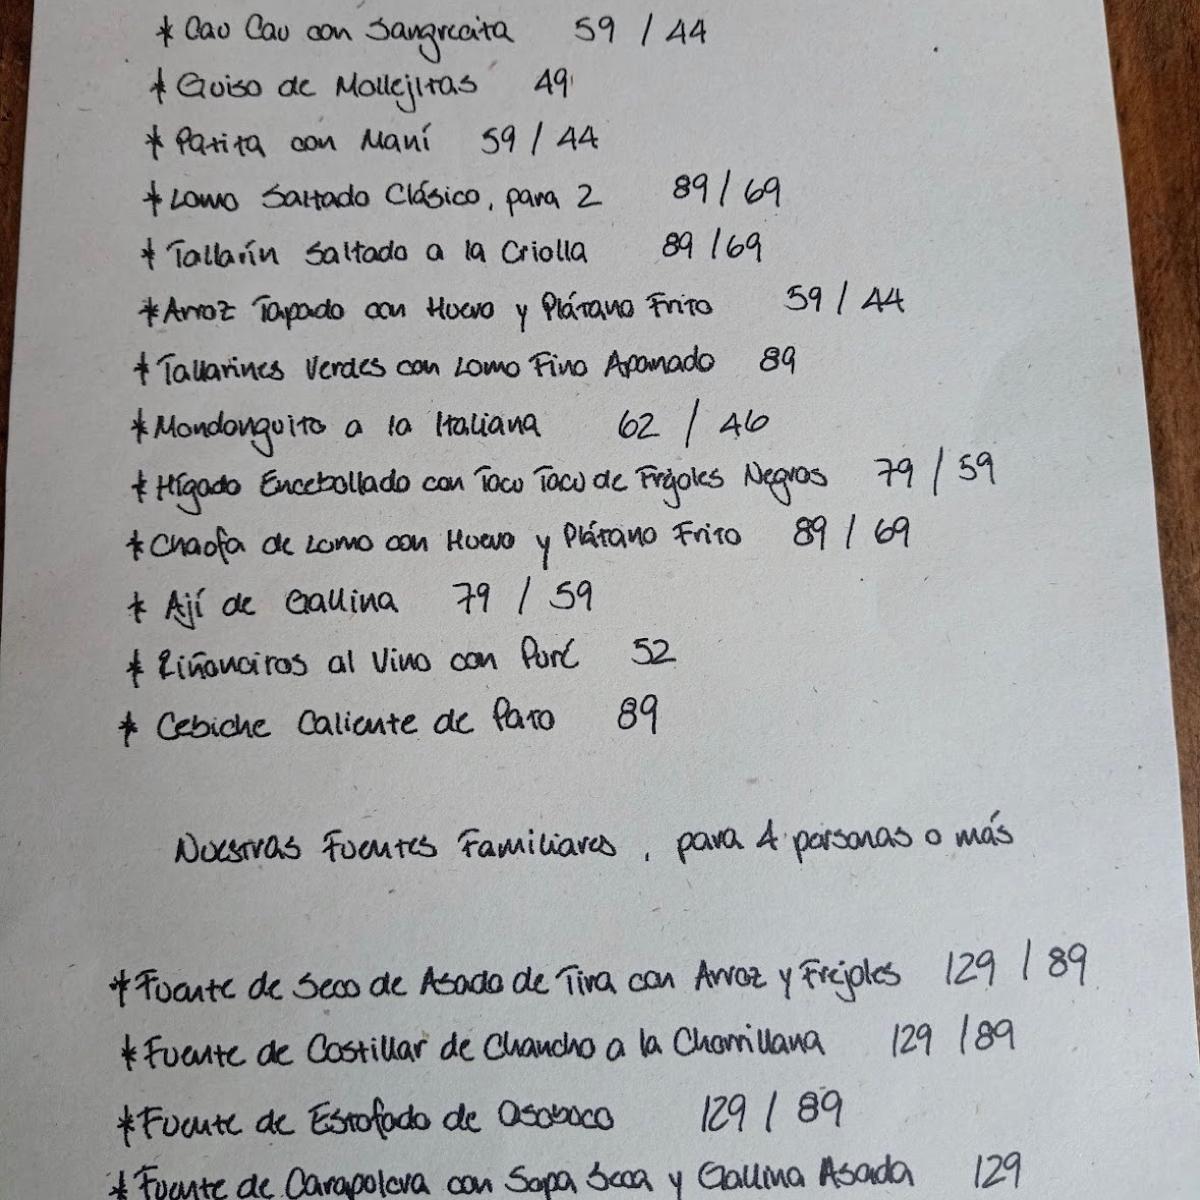 * Cau Cau con Sangrecita 59 / 44
* Guiso de Mollejitas 49
* Patita con Maní 59 / 44
* Lomo Saltado Clásico, para 2 89 / 69
* Tallarín Saltado a la Criolla 89 / 69
* Arroz Tapado con Huevo y Plátano Frito 59 / 44
* Tallarines Verdes con Lomo Fino Apanado 89
* Mondonguito a la Italiana 62 / 46
* Hígado Encebollado con Tacu Tacu de Frejoles Negros 79 / 59
* Chaufa de Lomo con Huevo y Plátano Frito 89 / 69
* Ají de Gallina 79 / 59
* Riñoncitos al Vino con Puré 52
* Cebiche Caliente de Pato 89
Nuestras Fuentes Familiares, para 4 personas o más
* Fuente de Seco de Asado de Tira con Arroz y Frejoles 129 / 89
* Fuente de Costillar de Chancho a la Chorrillana 129 / 89
* Fuente de Estofado de Osobuco 129 / 89
* Fuente de Carapulcra con Sopa Seca y Gallina Asada 129